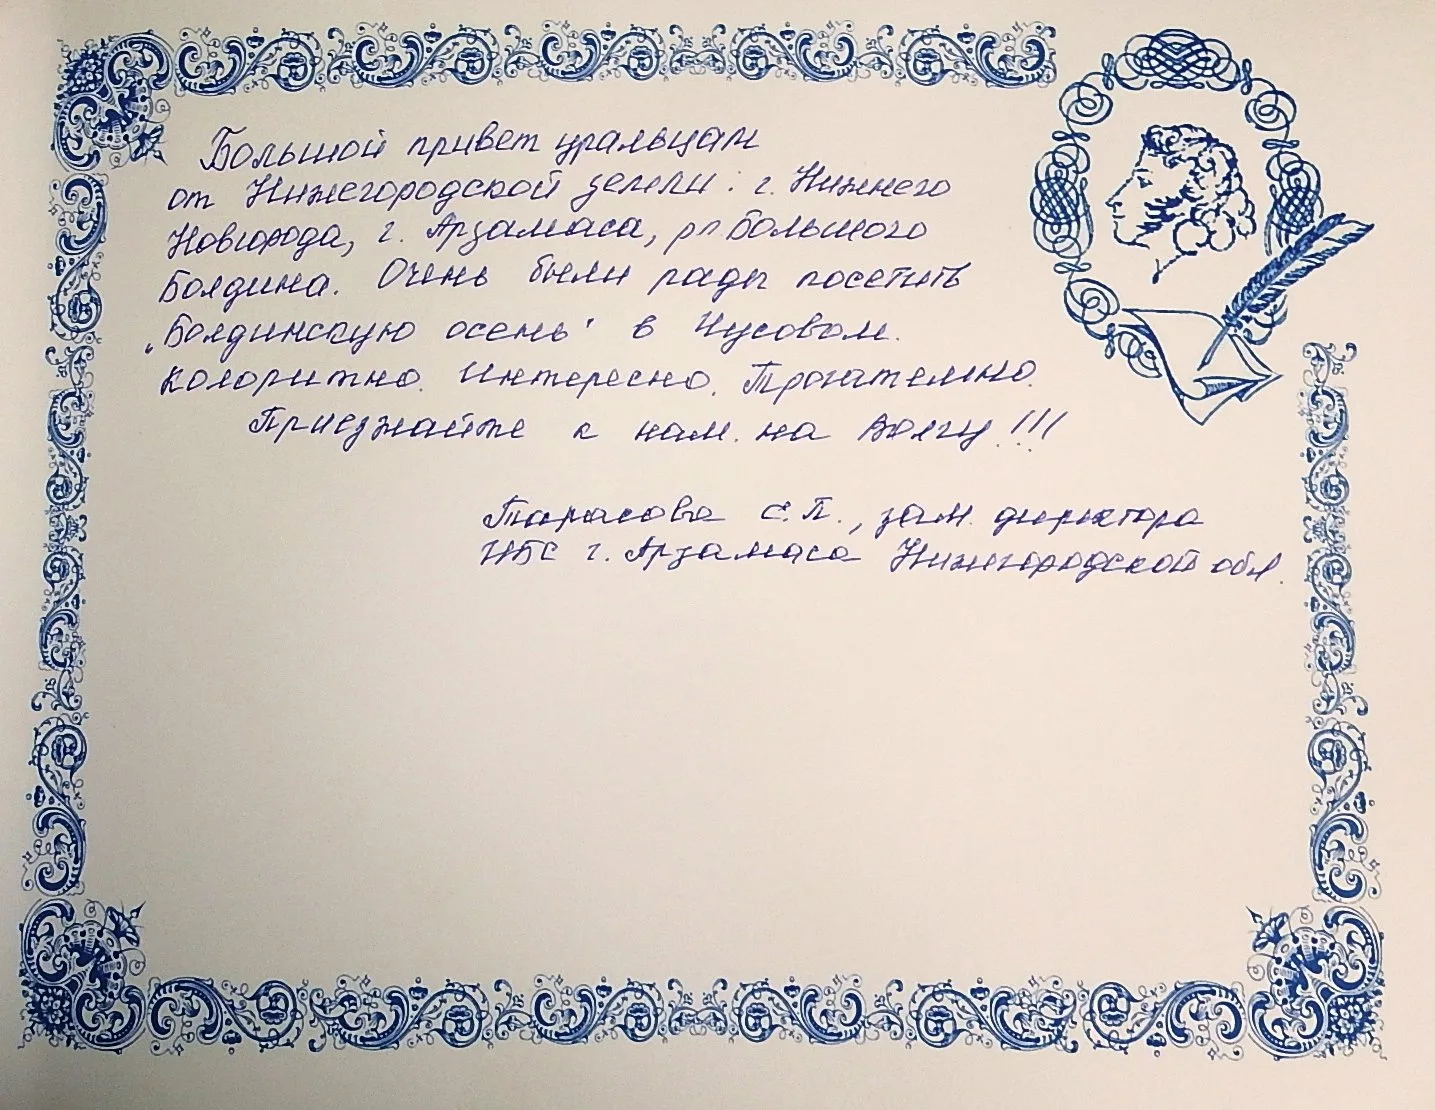 Большой привет уральцам
от Нижегородской земли: г. Нижнего
Новгорода, г. Арзамаса, рп Большого
Болдина. Очень были рады посетить
„Болдинскую осень" в Чусовом.
Колоритно. Интересно. Трогательно.
Приезжайте к нам на Волгу!!!
Тарасова Е.П., зам. директора
ЦБС г. Арзамаса Нижегородской обл.